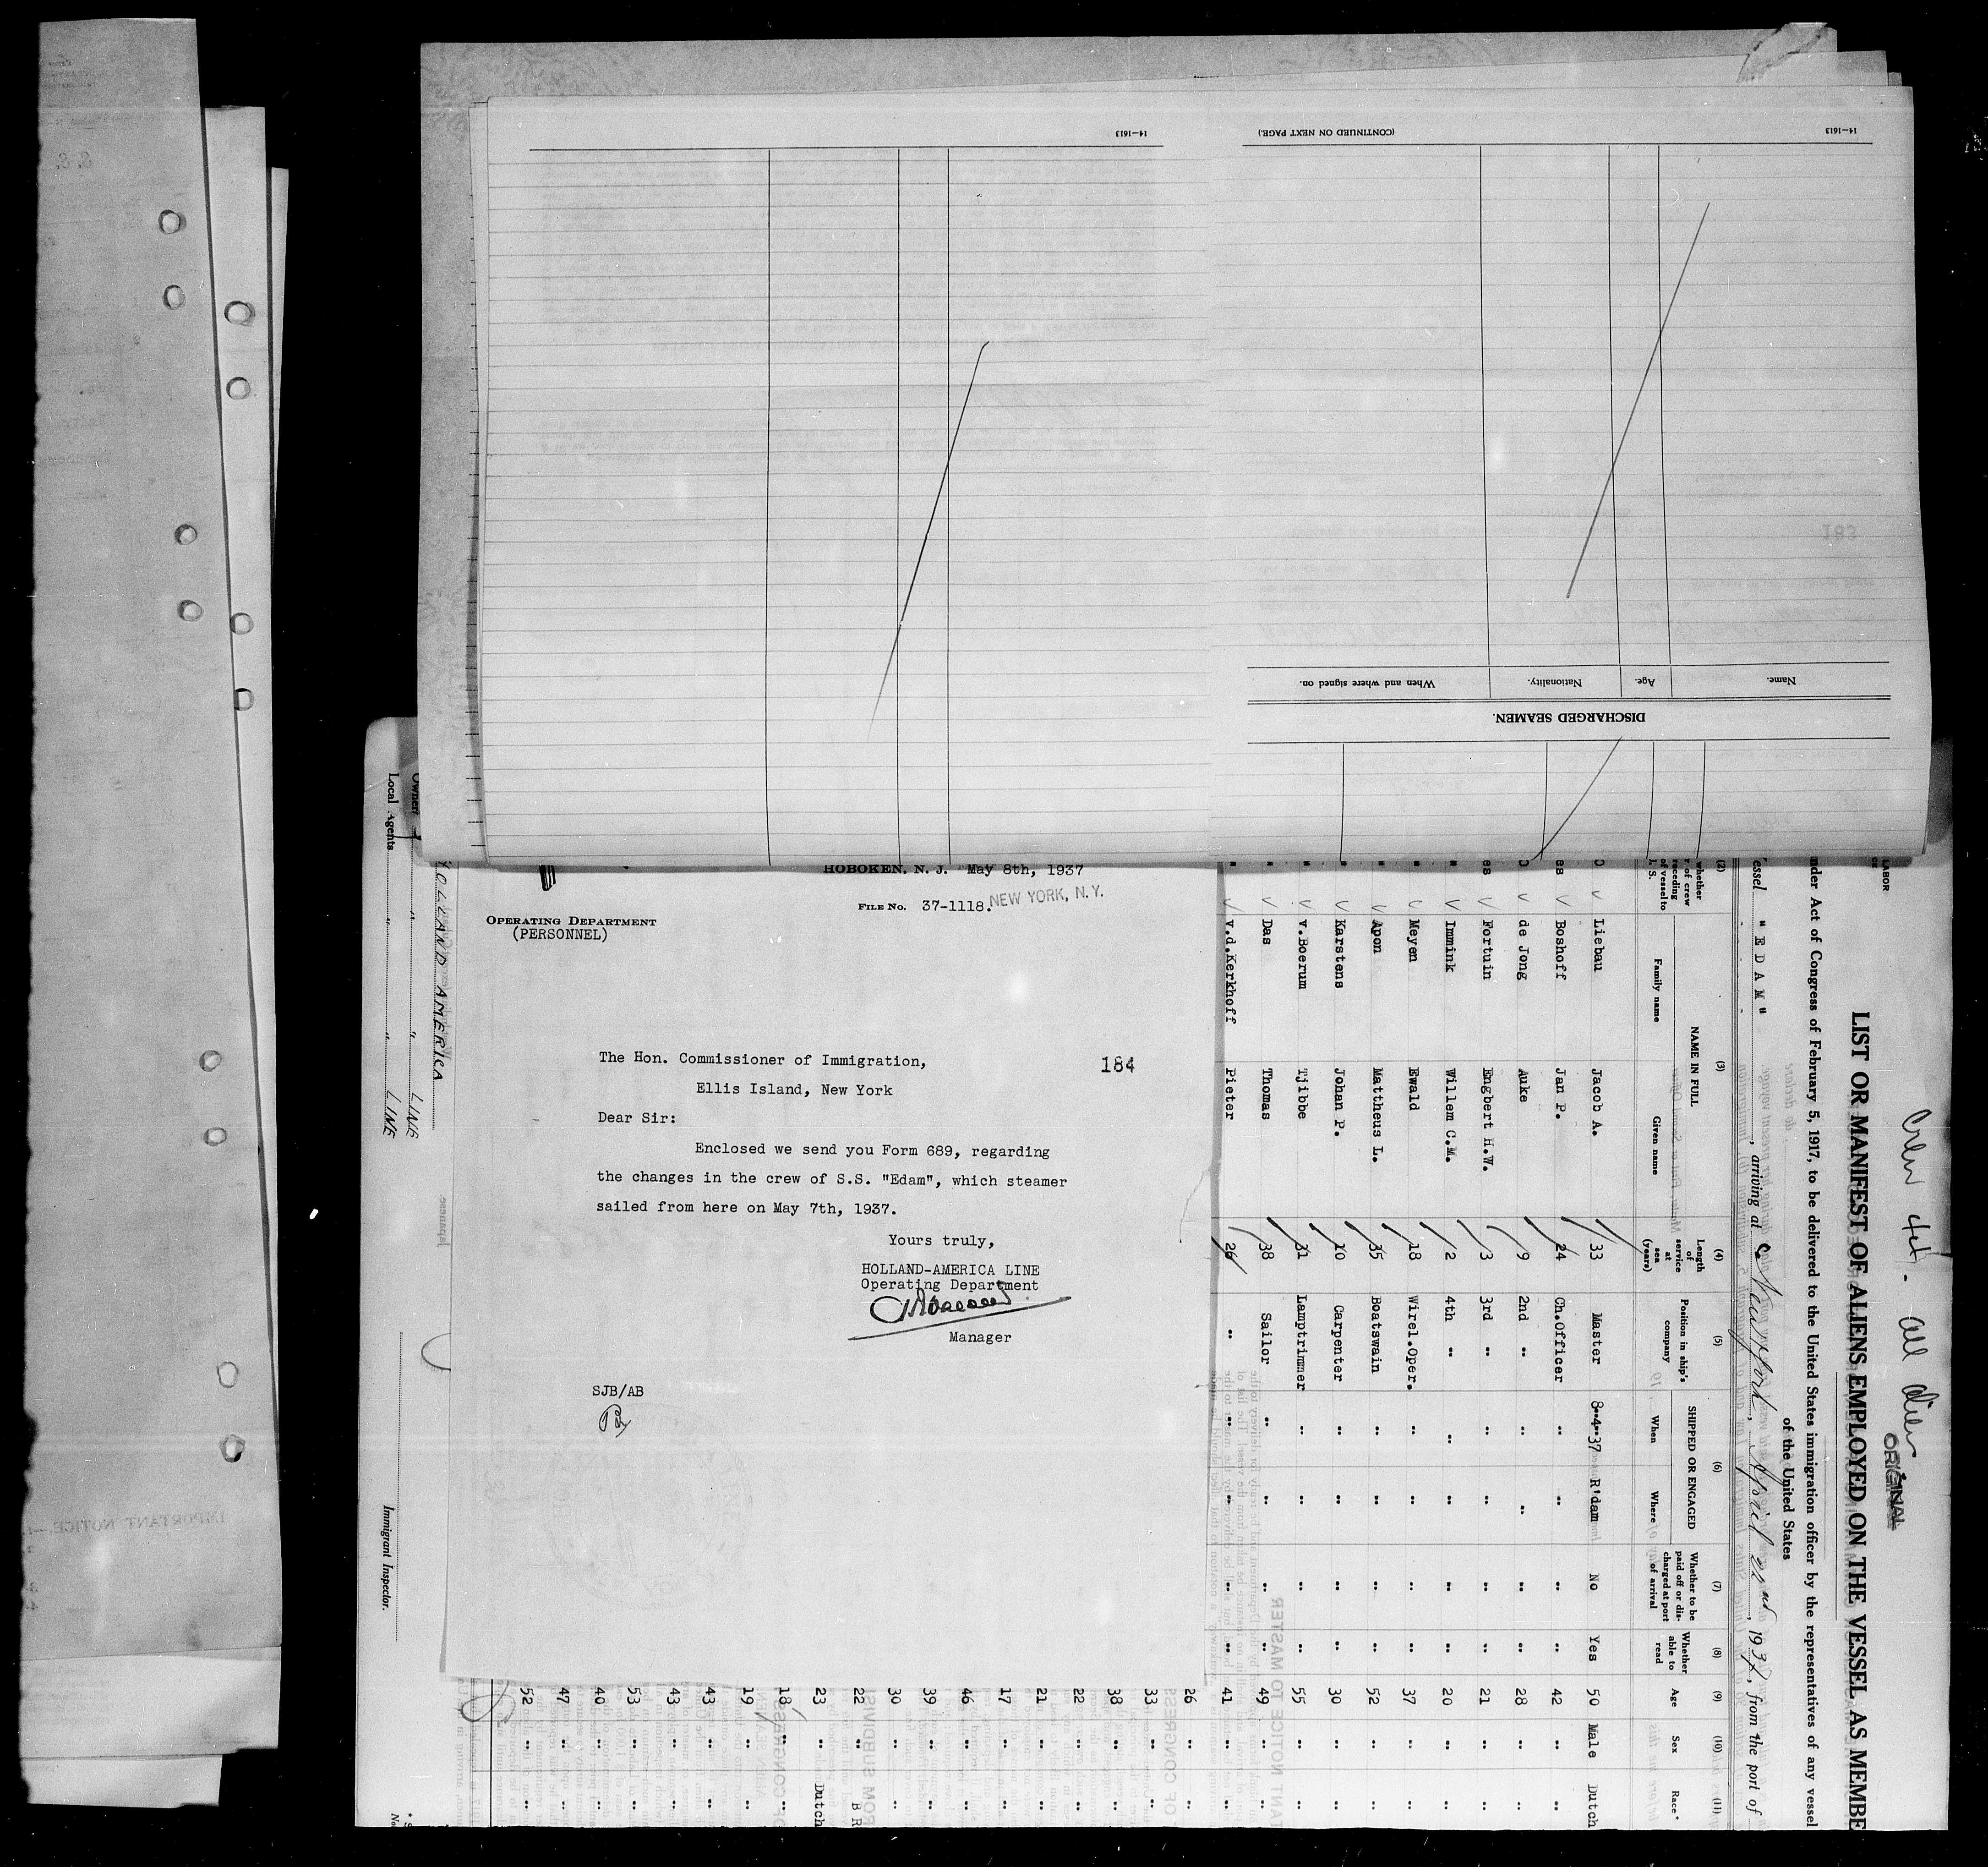 14—1613
(CONTINUED ON NEXT PAGE.)
14—1613
183
Name.
Age.
Nationality.
When and where signed on.
DISCHARGED SEAMEN.
HOBOKEN, N. J. May 8th, 1937
FILE No. 37-1118.
NEW YORK, N.Y.
OPERATING DEPARTMENT
(PERSONNEL)
184
The Hon. Commissioner of Immigration,
Ellis Island, New York
Dear Sir:
Enclosed we send you Form 689, regarding
the changes in the crew of S.S. "Edam", which steamer
sailed from here on May 7th, 1937.
Yours truly,
HOLLAND-AMERICA LINE
Operating Department
Manager
SJB/AB
Crew list - all alien
ORIGINAL
LABOR
LIST OR MANIFEST OF ALIENS EMPLOYED ON THE VESSEL AS MEMBE
nder Act of Congress of February 5, 1917, to be delivered to the United States immigration officer by the representatives of any vessel
of the United States
essel "EDAM", arriving at Newyork, April 22nd, 1937, from the port of
(2) (3) (4) (5) (6) (7) (8) (9) (10) (11)
whether
of crew
receding
of vessel to
U. S.
NAME IN FULL
Family name
Given name
Length
of
service
at
sea
(years)
Position in ship's
company
SHIPPED OR ENGAGED
When
Where
Whether to be
paid off or dis-
charged at port
of arrival
Whether
able to
read
Age
Sex
Race*
Liebau Jacob A. 33 Master 8-4-37 R'dam No Yes 50 Male Dutch
es Boshoff Jan P. 24 Ch.Officer " " " " 42 " "
de Jong Auke 9 2nd " " " " " 28 " "
es Fortuin Engbert H.W. 3 3rd " " " " " 21 " "
" Immink Willem C.M. 2 4th " " " " " 20 " "
" Meyen Ewald 18 Wirel.Oper. " " " " 37 " "
" Apon Mattheus L. 35 Boatswain " " " " 52 " "
" Karstens Johan P. 10 Carpenter " " " " 30 " "
" v.Boerum Tjibbe 31 Lamptrimmer " " " " 55 " "
" Das Thomas 38 Sailor " " " " 49 " "
" v.d.Kerkhoff Pieter 26 " " " " " 41 " "
26 " "
33 " "
38 " "
22 " "
21 " "
17 " "
46 " "
39 " "
30 " "
22 " B R
23 " Dutch
18 " "
19 " "
43 " "
43 " "
53 " "
40 " "
47 " "
52 " "
HOLLAND AMERICA
Owner " " LINE
Local Agents " " LINE
Immigrant Inspector.
Japanese
IMPORTANT NOTICE.—
TANT NOTICE TO MASTER
OF CONGRESS
FROM SUBDIVISI
OF CONGRESS